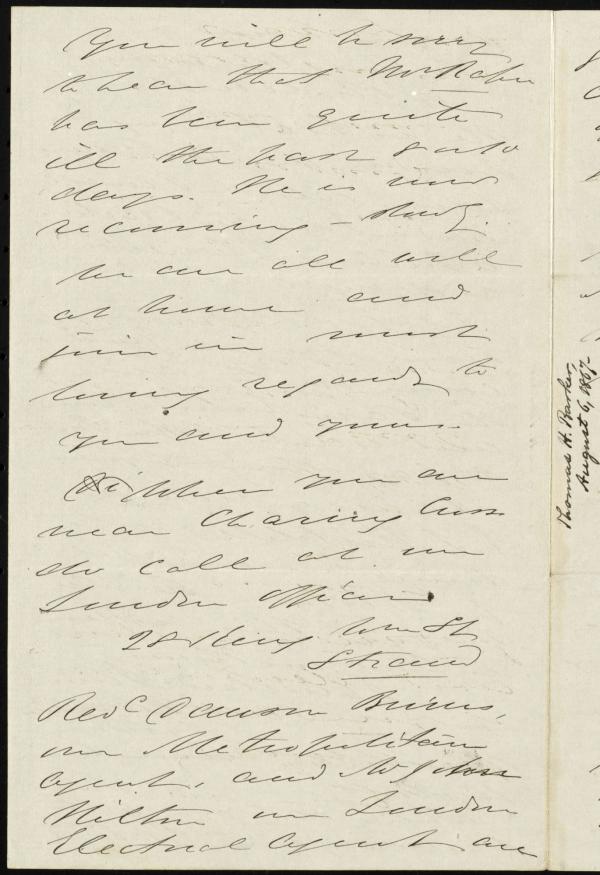 You will be sorry
to hear that Mr Raper
has been quite
ill the last 8 or 10
days. He is now
recovering – slowly.
We are all well
at home and
join in most
loving regards to
you and yours.
When you are
near Charing Cross
do call at our
London Offices
28 King Wm St
Strand
Revd Dawson Burns,
our Metropolitan
Agent, and Mr John
Hilton our London
Electoral Agent are
Thomas H. Barker,
August 6, 1867